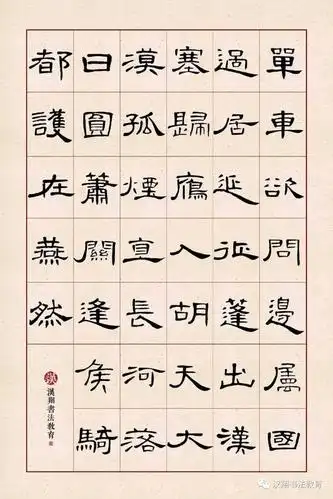 單車欲問邊屬國
過居延征蓬出漢
塞歸鴈入胡天大
漠孤煙直長河落
日圓蕭關逢候騎
都護在燕然
漢
漢翔書法教育
汉翔书法教育